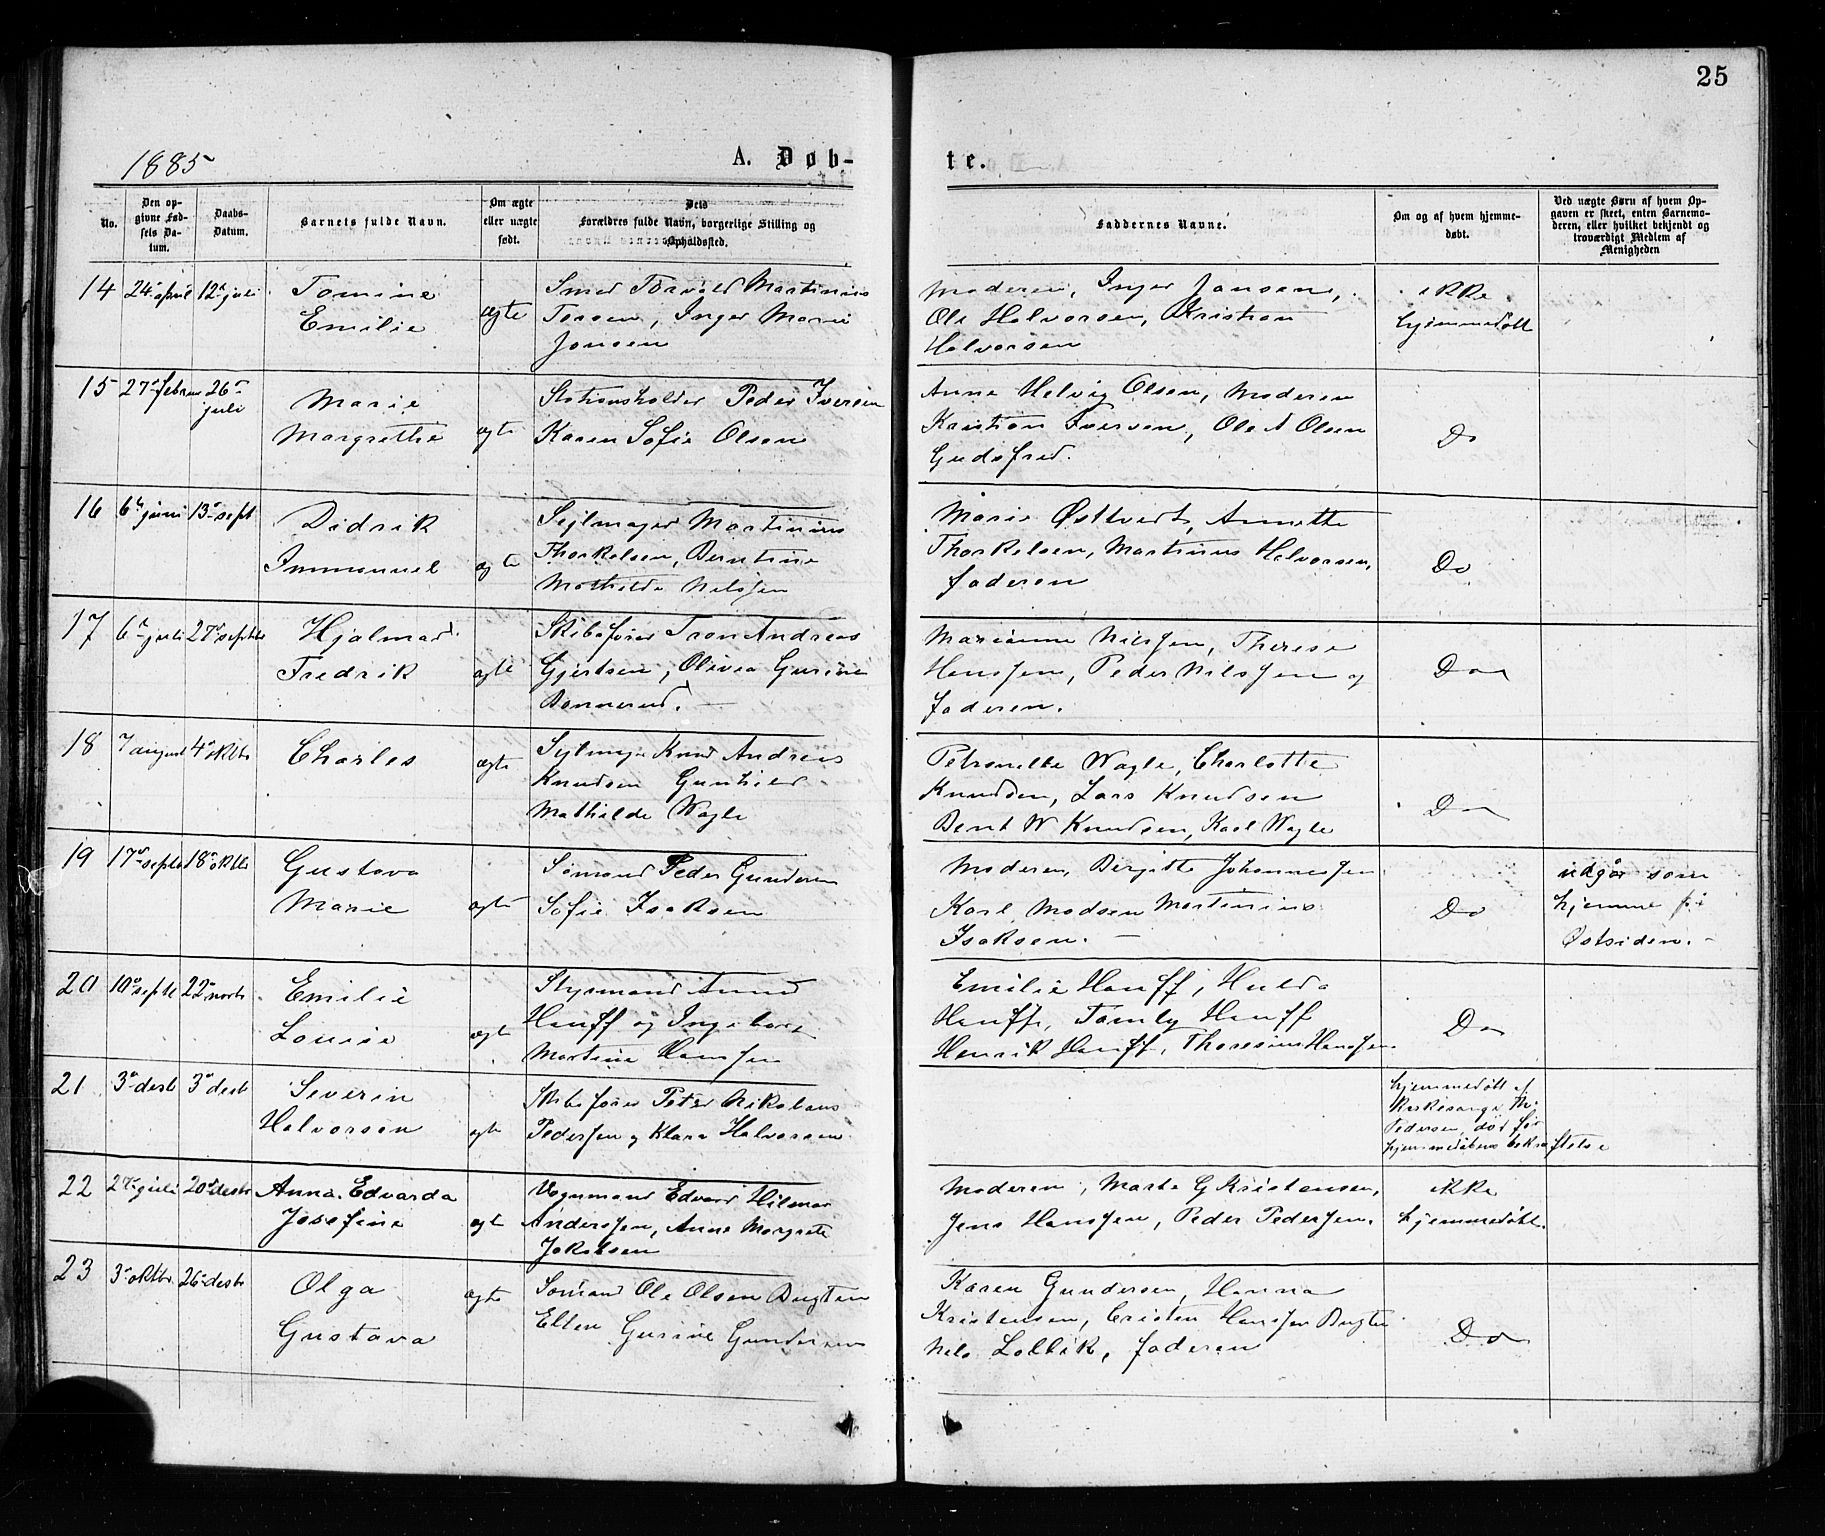 25
1885
A. Døb-
te.
No.
Den op-
givne Fød-
sels Da-
tum.
Daabs-
Datum.
Barnets fulde Navn.
Om ægte
eller uægte
født.
Dets
Forældres fulde Navn, borgerlige Stilling og
Opholdssted.
Faddernes Navne.
Om og af hvem hjemme-
døbt.
Ved uægte Børn af hvem Op-
gaven er skeet, enten Barnemo-
deren, eller hvilket bekjendt og
troværdigt Medlem af
Menigheden
14 24 april 12 juli Tomine
Emilie
ægte
Smed Torvald Martinius
Inger Marie
Jansen
Moderen, Inger Jansen,
Ole Halvorsen, Kristian
Halvorsen
ikke
hjemmedøbt
15 27 febru 26
juli
Marie
Margrethe
ægte
Stationsholder Peder Iversen
Karen Sofie Olsen
Anne Helvig Olsen, Moderen
Kristian Iversen, Ole A Olsen
Gudsfred.
Do
16 6 juni 13 sept
Didrik
Immanuel
ægte
Sejlmager Martinius
Thorkelsen, Berntine
Mathilde Nilssen
Marie Østtvert, Annette
Thorkelsen, Martinus Halvorsen,
faderen
Do
17 6 juli 27 septbr
Hjalmar
Fredrik
ægte
Skibsfører Tron Andreas
Gjertsen, Olivia Gurine
Bonnerud.
Marianne Nilssen, Therese
Hanssen, Peder Nilssen og
faderen.
Do
18 7 august 4 oktbr
Charles
ægte
Sejlmager Knud Andreas
Knudsen Gunhild
Mathilde Wagle
Petronelle Wagle, Charlotte
Knudsen, Lars Knudsen
Bent W Knudsen, Karl Wagle
Do
19 17 septb 18 oktbr
Gustava
Marie
ægte
Sømand Peder Gundersen
Sofie Isaksen
Moderen, Birgitte Johannessen
Karl Madsen Martinius
Isaksen.
Do
udgår som
hjemme på
Østsiden.
20 10 septb 22 novbr
Emilie
Louise
ægte
Styrmand
Hanff og Ingeborg
Martine Hanssen
Emilie Hanff, Hulda
Hanff, Hanff
Henrik Hanff, Hanssen
Do
21 3 desb 3 desb
Severin
Halvorsen
ægte
Skibsfører Peter Nikolaus
Pedersen og Klara Halvorsen
hjemmedøbt af
Kirkesanger
Pedersen, død før
hjemmedåbens bekræftelse
22 24 juli 20 desbr
Anna Edvarda
Josefine
ægte
Vognmand Edvard Hilmar
Anderssen, Anne Margrete
Jakobsen
Moderen, Marte G Kristensen,
Jens Hanssen, Peder Pedersen.
ikke
hjemmedøbt.
23 3 oktbr 26 desbr
Olga
Gustava
ægte
Sømand Ole Olsen Bugten
Ellen Gurine Gundersen
Karen Gundersen, Hanna
Kristensen, Cristen Hanssen Bugten
Nils Lolbik, faderen
Do